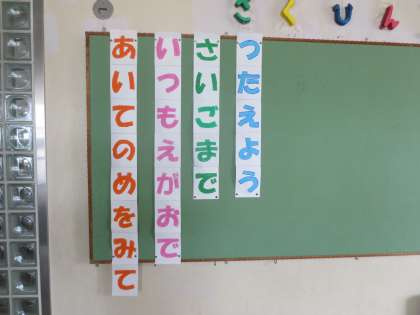 さくひん
つたえよう
さいごまで
いつもえがおで
あいてのめをみて